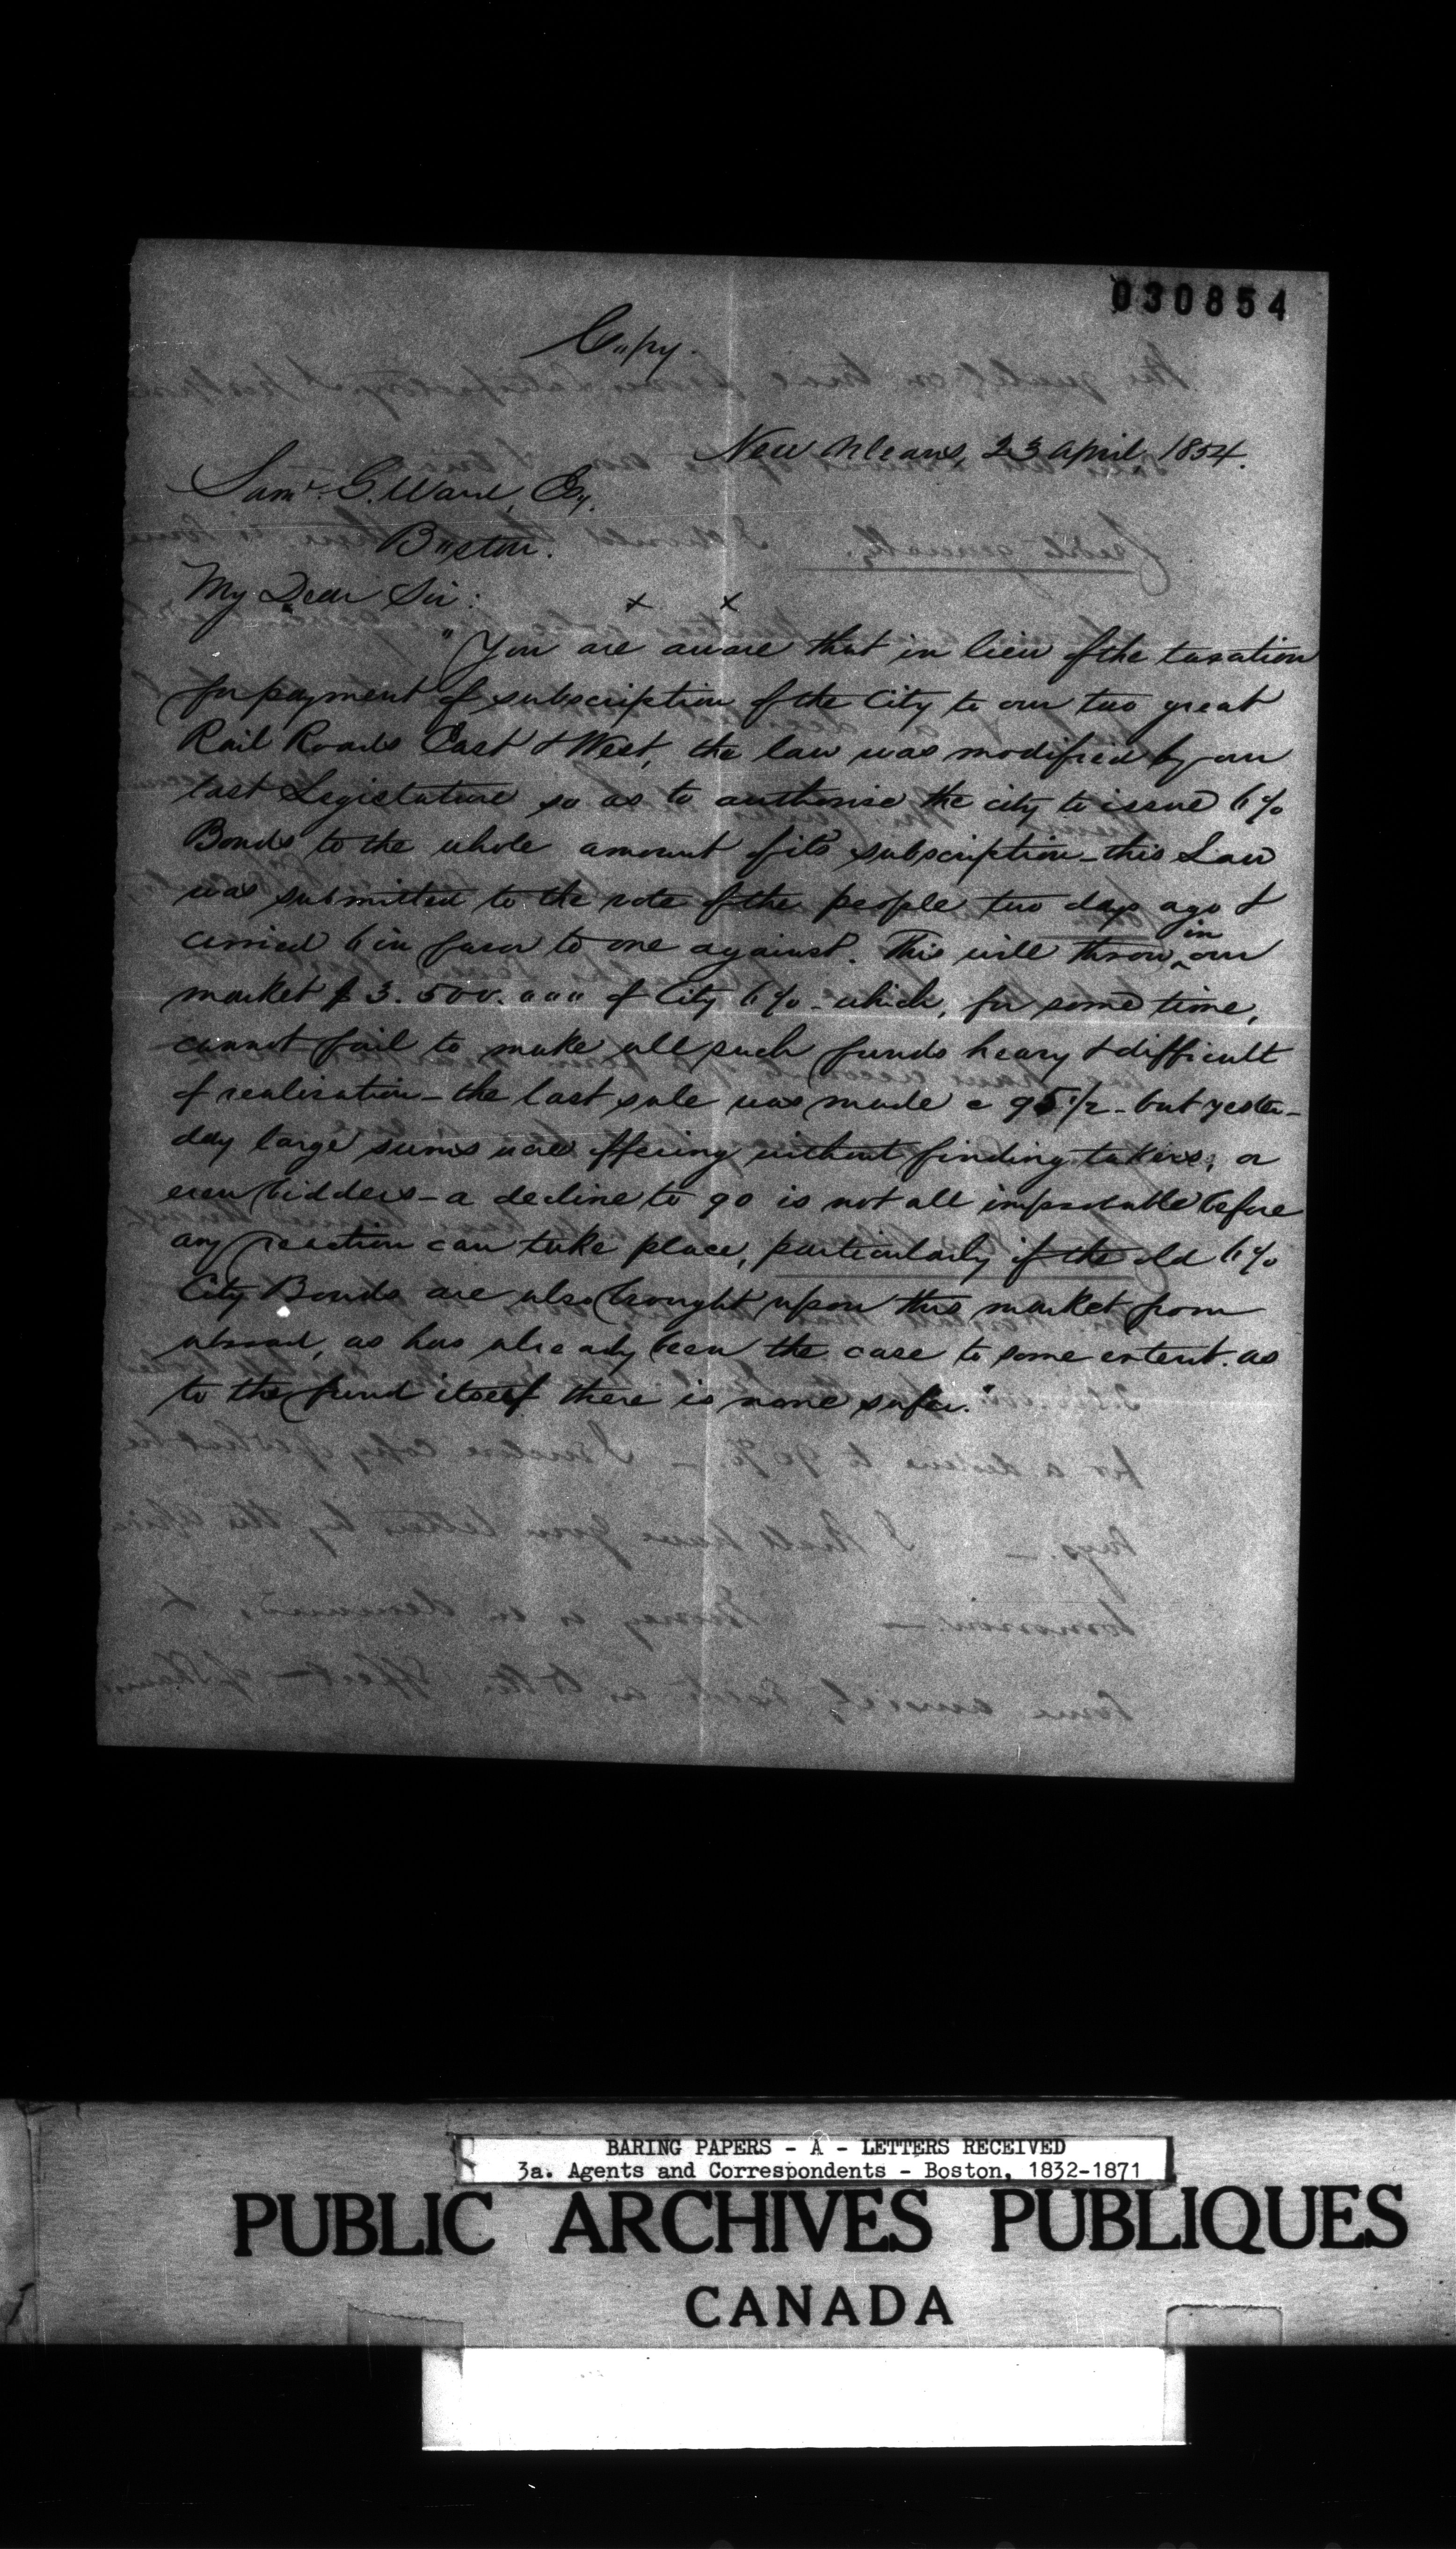 030854
Copy.
New Orleans, 23 April 1854.
Saml. G. Ward, Esq.
Boston.
My Dear Sir:
x x
"You are aware that in lieu of the taxation
for payment of subscription of the City to our two great
Rail Roads East & West, the law was modified by our
last Legislature so as to authorise the city to issue 6%
Bonds to the whole amount of its subscription - this Law
was submitted to the vote of the people two days ago &
carried 6 in favor to one against. This will throw in our
market $3.500.000 of City 6% - which, for some time,
cannot fail to make all such funds heavy & difficult
of realisation - the last sale was made @ 95 1/2 - but yester-
day large sums were offering without finding takers, or
even bidders - a decline to 90 is not all improbable before
any reaction can take place, particularly if the old 6%
City Bonds are also brought upon this market from
abroad, as has already been the case to some extent. as
to the fund itself there is none safer."
BARING PAPERS - A - LETTERS RECEIVED
3a. Agents and Correspondents - Boston, 1832-1871
PUBLIC ARCHIVES PUBLIQUES
CANADA